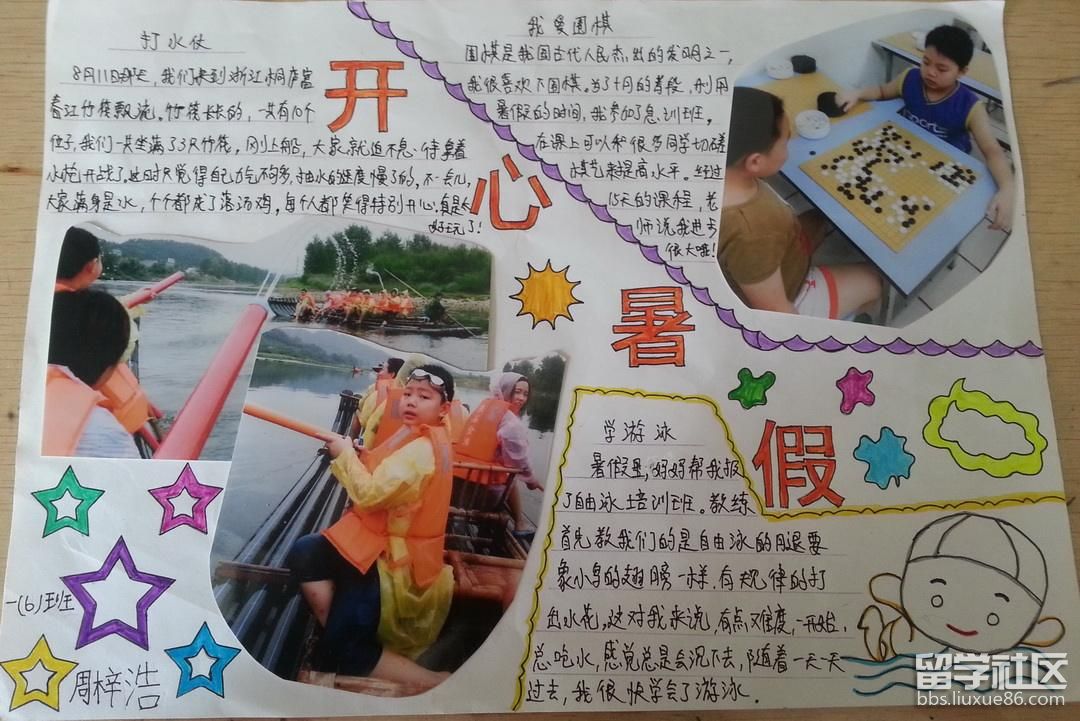 打水仗
8月11日那天,我们来到浙江桐庐富
春江竹筏飘流。竹筏长长的,一共有10个
位子,我们一共坐满了3只竹筏。刚上船,大家就迫不急待拿着
水炮开战了。这时只觉得自己力气不够多,抽水的速度慢了的。不一会儿,
大家满身是水,个个都成了落汤鸡,每个人都笑得特别开心,真是太
好玩了!
开
心
暑
假
我爱围棋
围棋是我国古代人民杰出的发明之一,
我很喜欢下围棋。为了十月的考段,利用
暑假的时间,我参加了急训班。
在课上可以和很多同学切磋
棋艺来提高水平。经过
15天的课程,老
师说我进步
很大哦!
学游泳
暑假里,妈妈帮我报
了自由泳培训班。教练
首先教我们的是自由泳的用腿要
象小鸟的翅膀一样,有规律的打
出水花,这对我来说,有点难度,一开始,
总吃水,感觉总是会沉下去,随着一天一天
过去,我很快学会了游泳.
一(6)班
周梓浩
留学社区
bbs.liuxue86.com